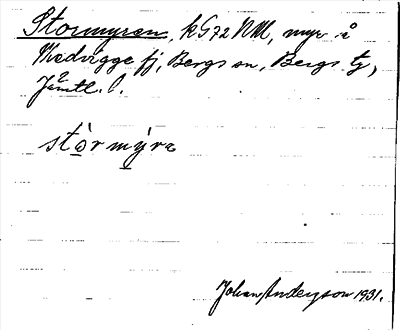 Stormyren, k G72 NM, myr å
Medvigge fj, Bergs sn, Bergs tg,
Jämtl. l.
stòrmýra
Johan Anderzson 1931.